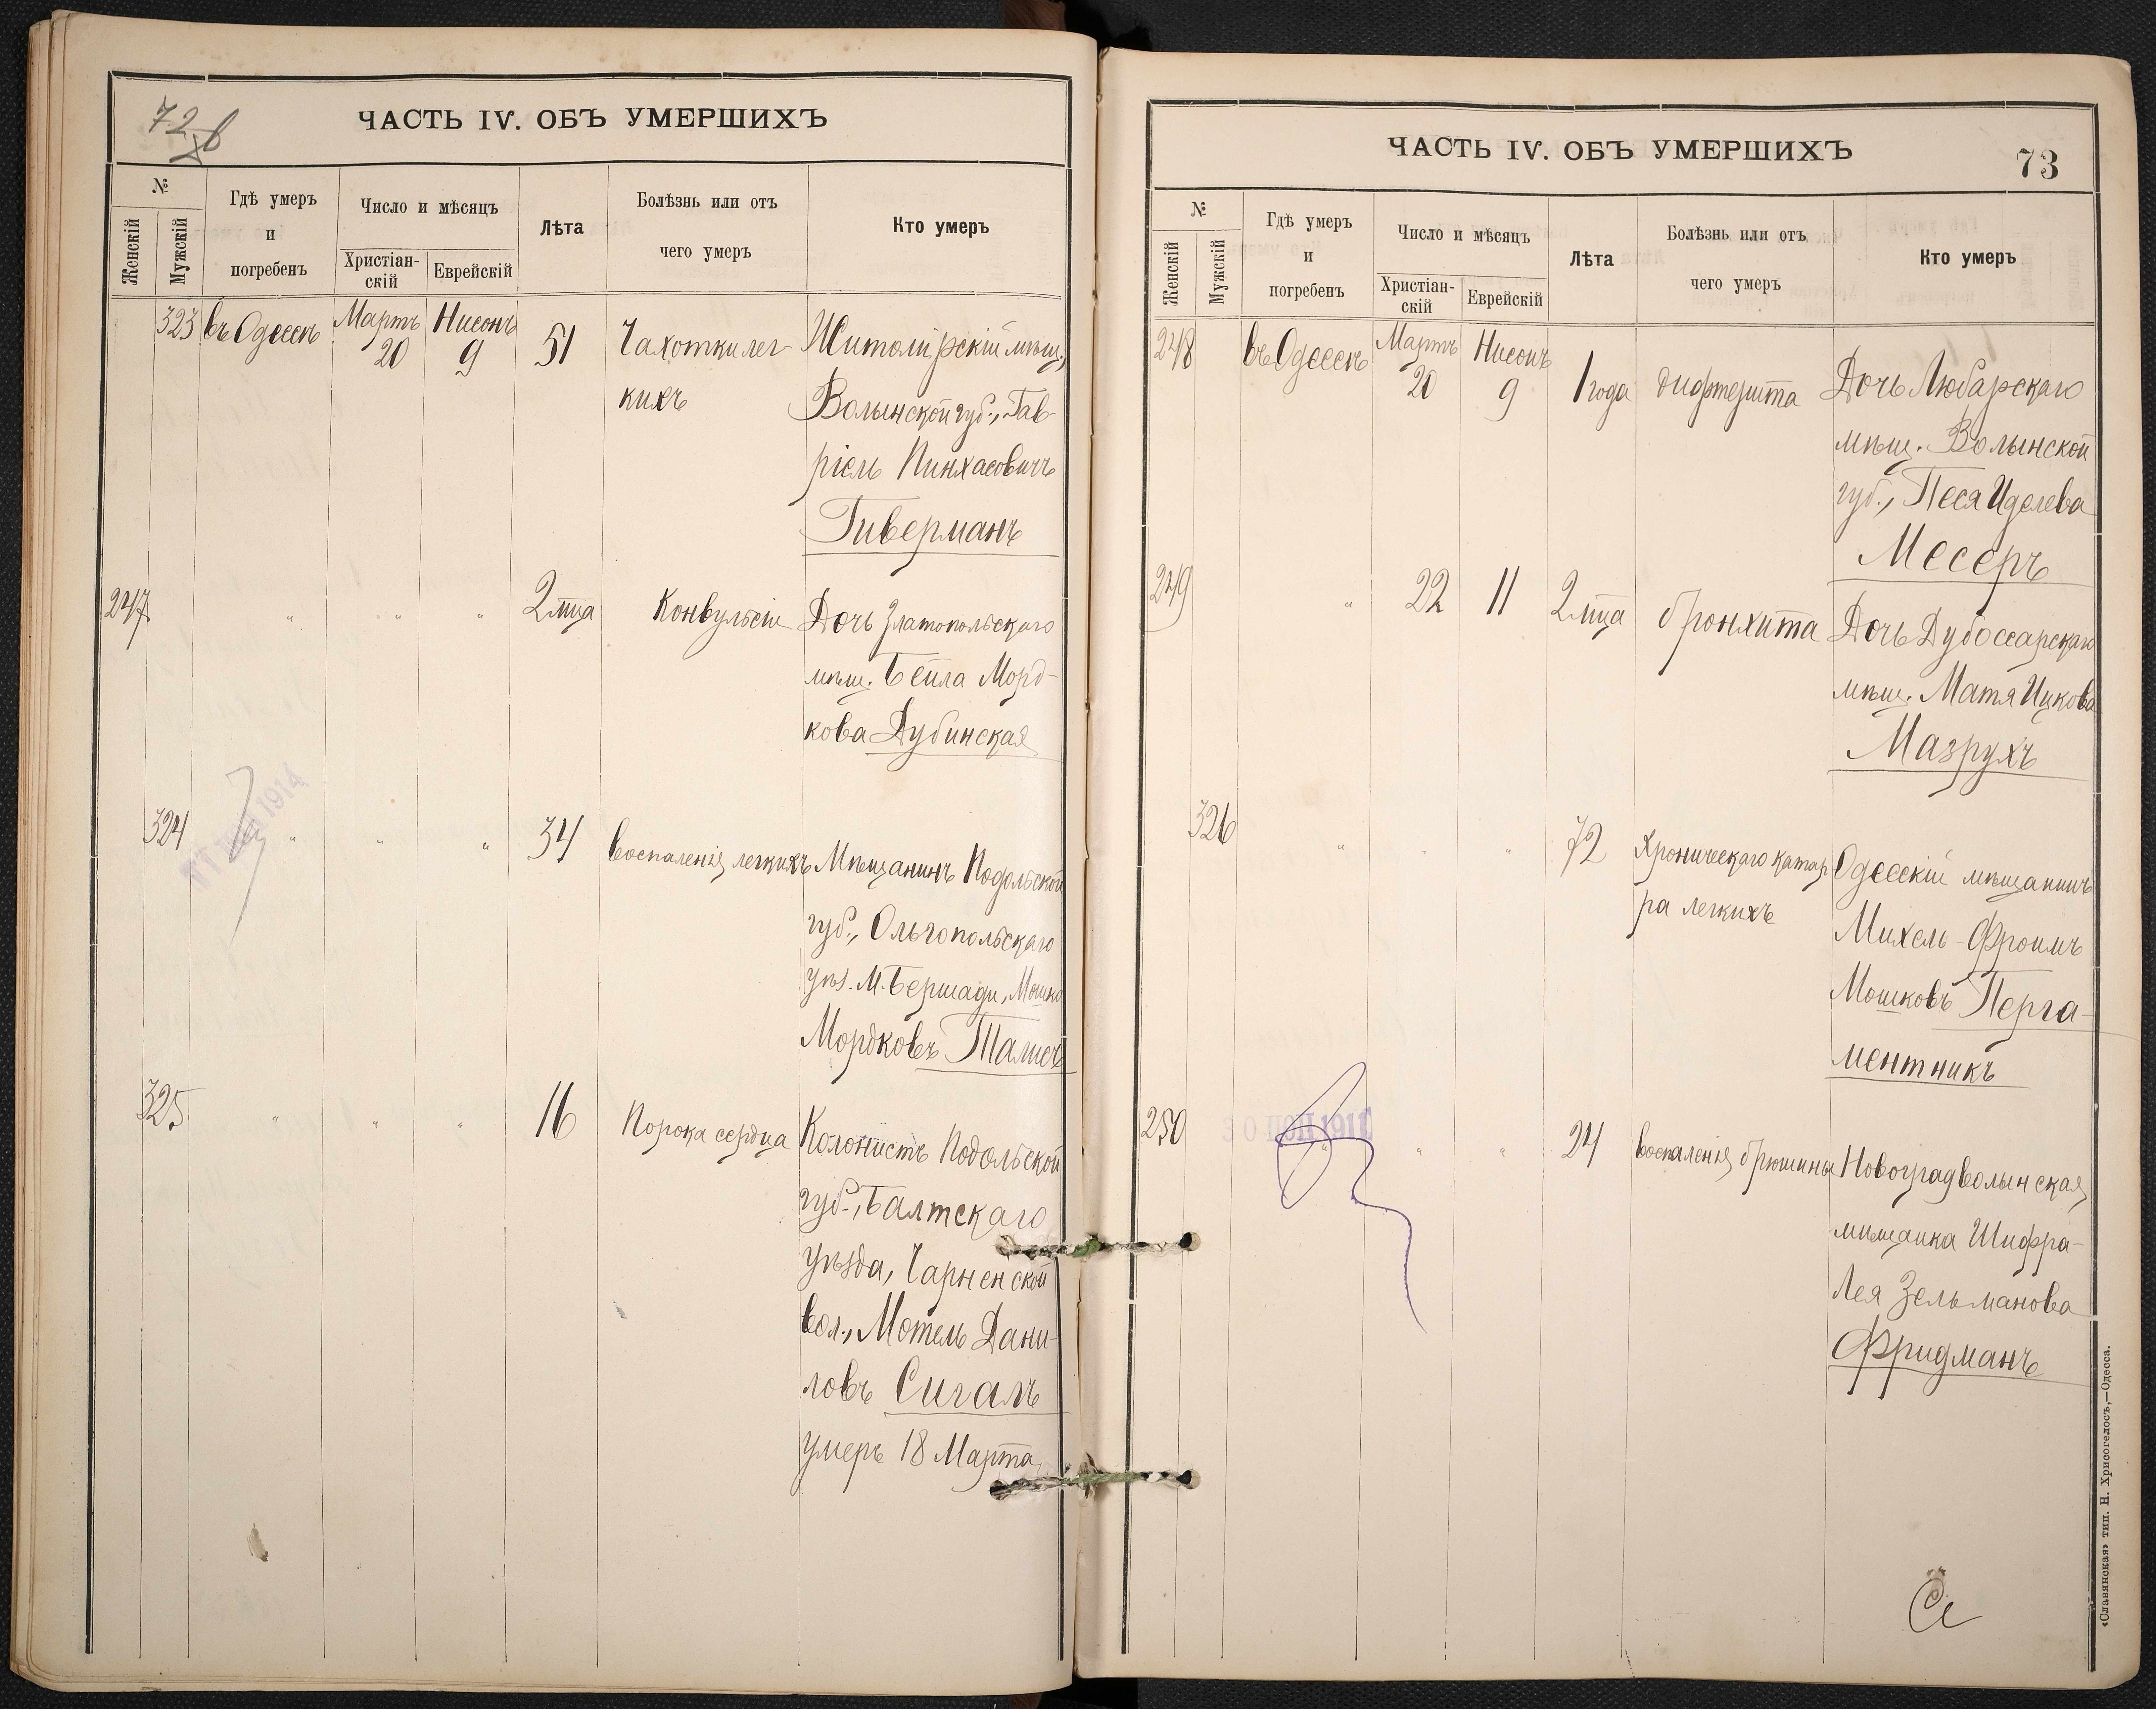 72 б
ЧАСТЬ IV. ОБЪ УМЕРШИХЪ
№
Женскій
Мужскій
Гдѣ умеръ
и
погребенъ
Число и мѣсяцъ
Христіан-
скій
Еврейскій
Лѣта
Болѣзнь или отъ
чего умеръ
Кто умеръ
323 въ Одессѣ Мартъ 20 Нисонъ 9 51 Чахотки лег-
кихъ
Житомірскій мѣщ.,
Волынской губ., Гав-
ріель Пинхасовичъ
Гиверманъ
247 " " " " 2 м-ца Конвульсіи Дочь Златопольскаго
мѣщ. Бейла Морд-
кова Дубинская
324 " " " 34 воспаленія легкихъ Мѣщанинъ Подольской
губ., Ольгопольскаго
уѣз. М. Бершади, Мошко
Мордковъ Талисъ
1914
325 " " " 16 Порока сердца Колонистъ Подольской
губ., Балтскаго
уѣзда, Чарненской
вол., Мотель Дани-
ловъ Сигалъ
умеръ 18 Марта
ЧАСТЬ IV. ОБЪ УМЕРШИХЪ
73
№
Женскій
Мужскій
Гдѣ умеръ
и
погребенъ
Число и мѣсяцъ
Христіан-
скій
Еврейскій
Лѣта
Болѣзнь или отъ
чего умеръ
Кто умеръ
248 въ Одессѣ Мартъ 20 Нисонъ 9 1 года дифтерита Дочь Любарскаго
мѣщ. Волынской
губ., Песя Иделева
Месеръ
249 " 22 11 2 м-ца бронхита Дочь Дубоссарскаго
мѣщ. Матя Ицкова
Мазрухъ
326 " " " 72 Хроническаго катар
ра легкихъ
Одесскій мѣщанинъ
Михель-Фроимъ
Мошковъ Перга-
ментникъ
250 " " " 24 воспаленія брюшины Новоградволынская
мѣщанка Шифра-
Лея Зельманова
Фридманъ
«Славянская» тип. Н. Хрисогелосъ,—Одесса.